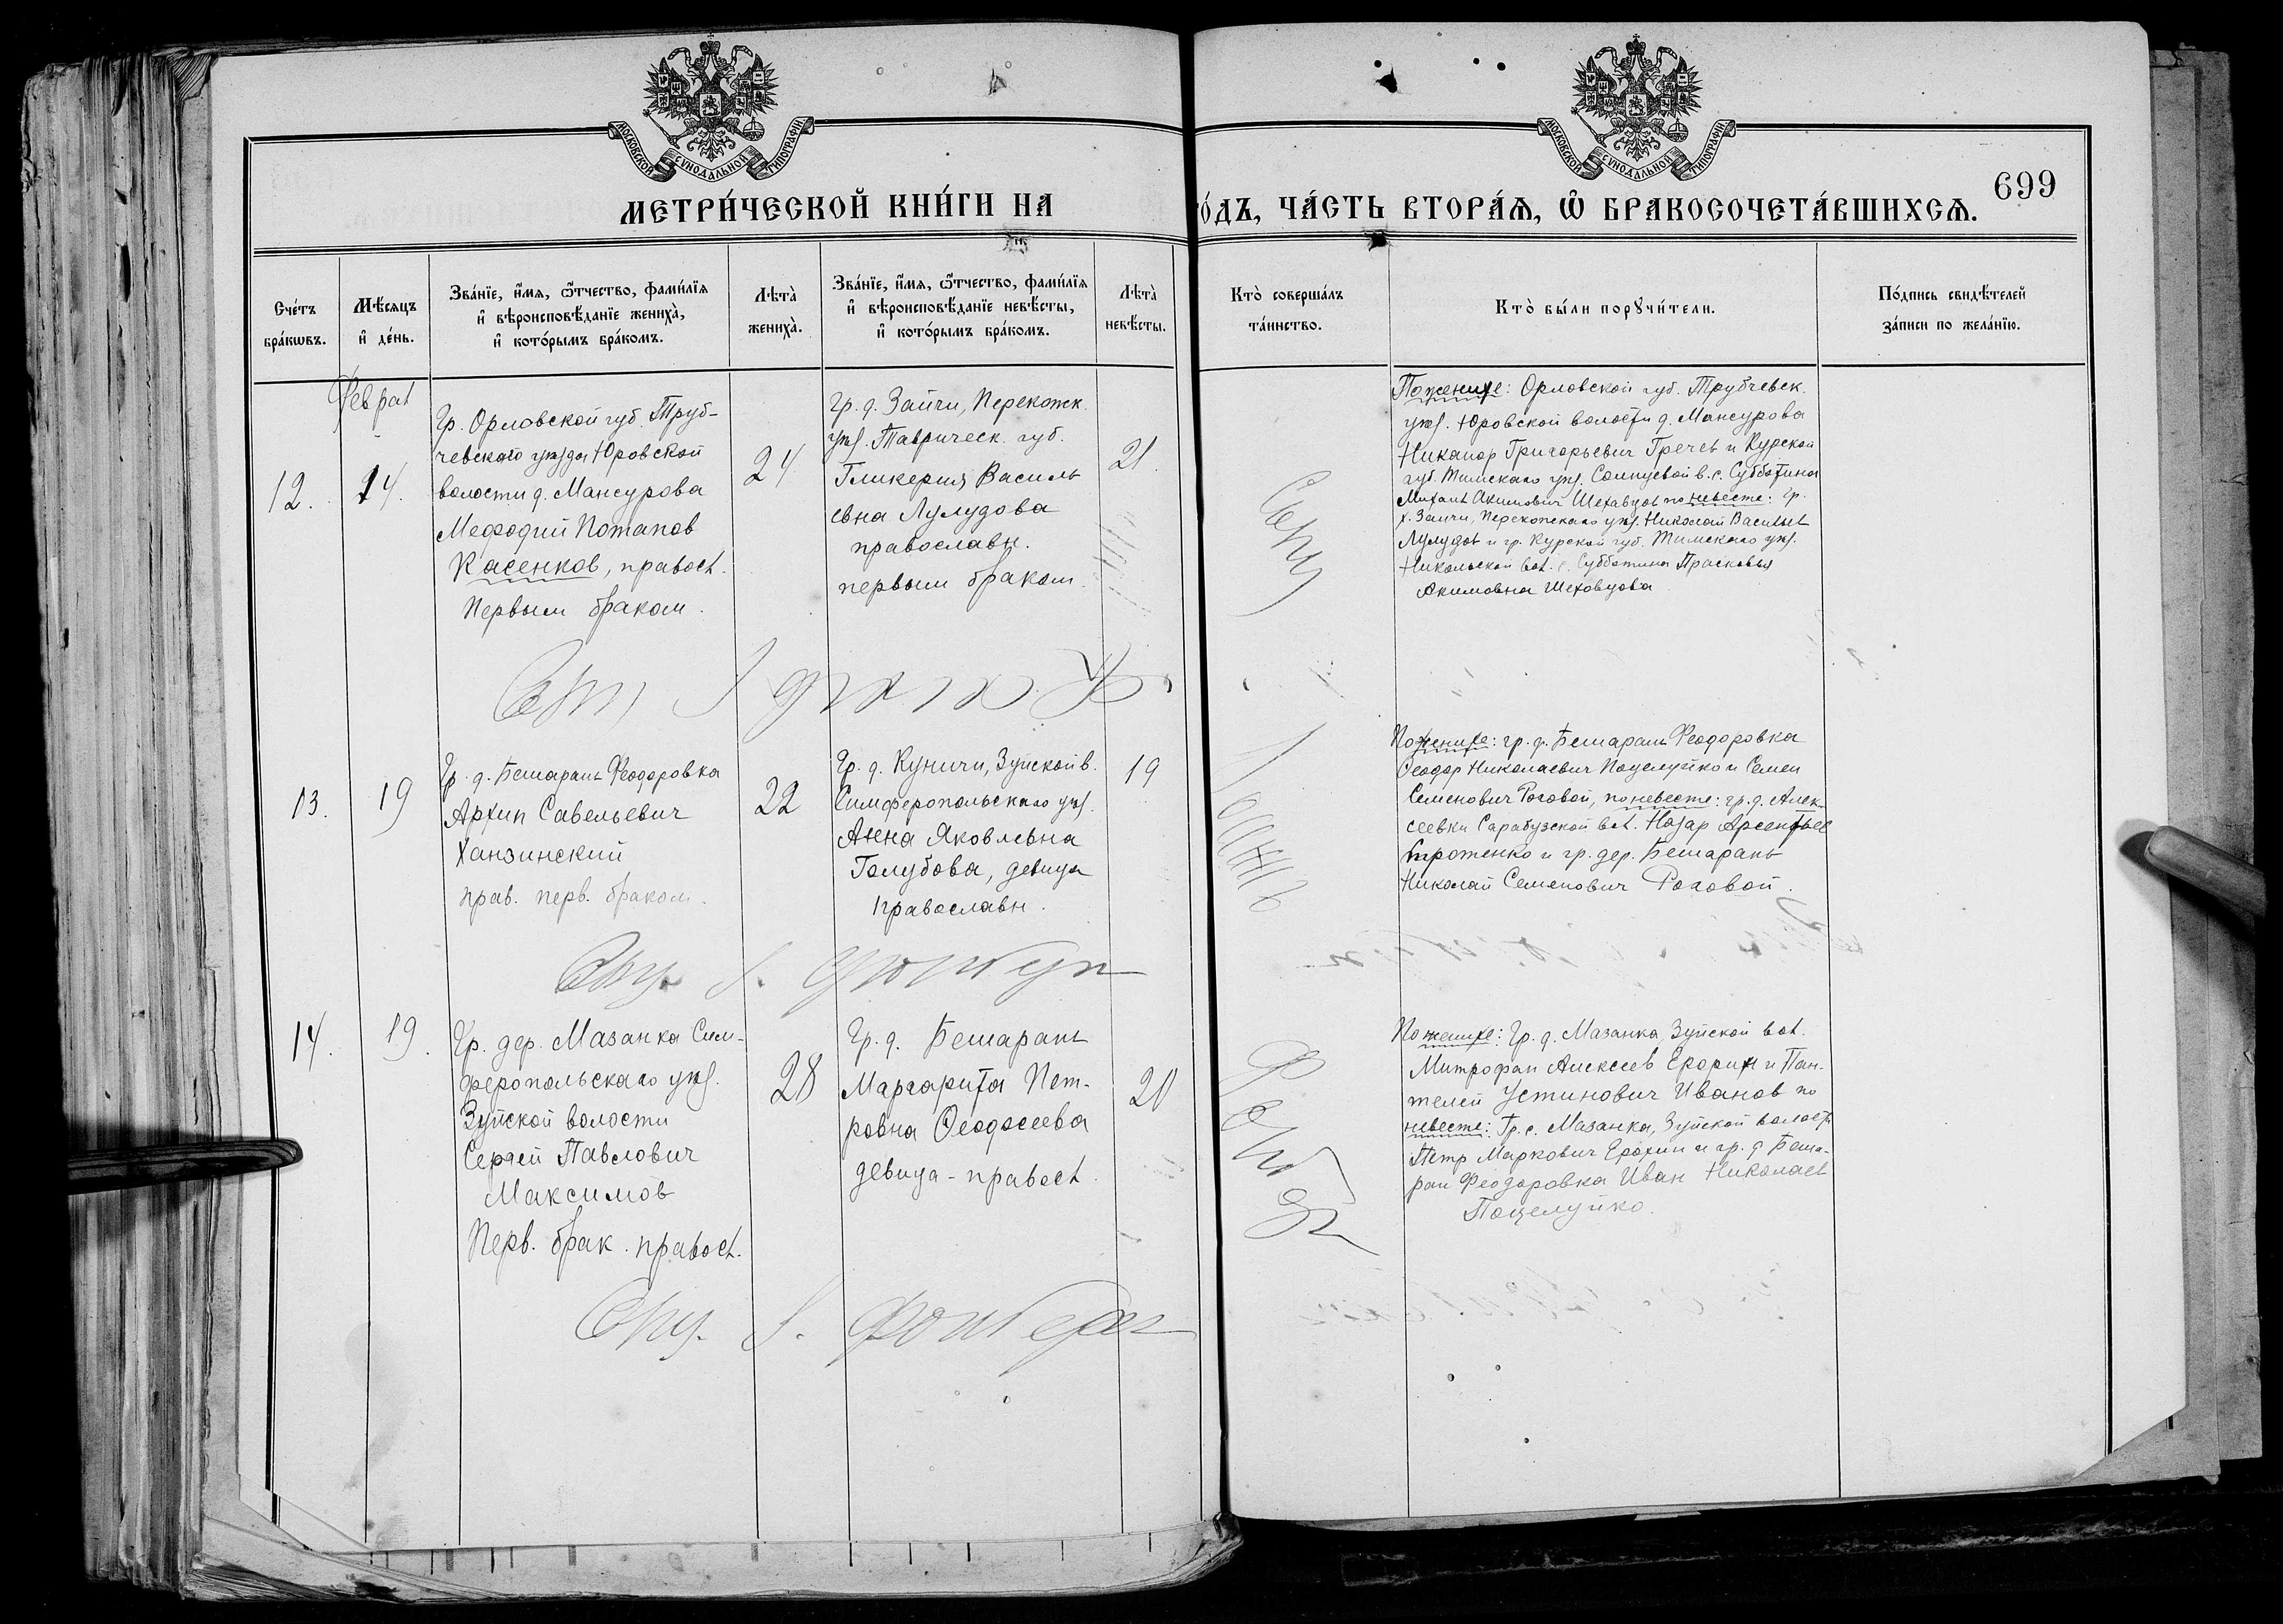 МОСКОВСКОЙ СѴНОДАЛЬНОЙ ТИПОГРАФІИ
МОСКОВСКОЙ СѴНОДАЛЬНОЙ ТИПОГРАФІИ
699
МЕТРИ́ЧЕСКОЙ КНИ́ГИ НА
О́ДЪ, ЧА́СТЬ ВТОРА́Ѧ, Ѡ҆ БРАКОСОЧЕТА́ВШИХСѦ.
Сче́тъ
бра́кѡвъ.
Мѣ́сѧцъ
и҆ де́нь.
Зва́нїе, и҆́мѧ, ѻ҆́тчество, фами́лїѧ
и҆ вѣроисповѣ́данїе жениха̀,
и҆ кото́рымъ бра́комъ.
Лѣта̀
жениха̀.
Зва́нїе, и҆́мѧ, ѻ҆́тчество, фами́лїѧ
и҆ вѣроисповѣ́данїе невѣ́сты,
и҆ кото́рымъ бра́комъ.
Лѣта̀
невѣ́сты.
Кто̀ соверша́лъ
та́инство.
Кто̀ бы́ли порꙋчи́тели.
По́дпись свидѣ́телей
за́писи по жела́нїю.
Феврал
12.
14.
Гр. Орловской губ. Труб-
чевского уезда Юровской
волости д. Мансурова
Мефодий Потапов
Касенков, правосл.
Первым браком.
24
гр. д. Зайчи, Перекопск.
уез. Таврическ. губ.
Гликерия Василь
евна Лулудова
православн.
первым браком
21.
По женихе: Орловской губ. Трубчевск.
уез. Юровской волости д. Мансурова
Никанор Григорьевич Гречев и Курской
губ. Тимскаго уез. Солнцевой в. с. Субботина
Михаил Акимович Шеховцов по невесте: гр.
Перекопскаго уез. Николай Васильев
Лулудов и гр. Курской губ. Тимскаго уез.
Никольской вол. с. Субботина Прасковья
Акимовна Шеховцова
13.
19
Гр. д. Бешарань Феодоровка
Архип Савельевич
Ханзинский
прав. перв. браком.
22
Гр. д. Куничи, Зуйской в.
Симферопольскаго уез.
Анна Яковлевна
Голубова, девица
православн.
19
По женихе: гр. д. Бешарань Феодоровка
Феодор Николаевич Поцелуйко и Семен
Семенович Роговой, по невесте: гр. д. Алек-
сеевки Сарабузской вол. Назар Арсентьев
и гр. дер. Бешарань
Николай Семенович Роговой.
14.
19.
Гр. дер. Мазанка Сим-
феропольскаго уез.
Зуйской волости
Сергей Павлович
Максимов
Перв. брак. правосл.
28
Гр. д. Бешарань
Маргарита Пет-
ровна Феодосеева
девица - правосл.
20
По женихе: Гр. д. Мазанка, Зуйской вол.
Митрофан Алексеев Ерохин и Пан-
телей Устинович Иванов по
невесте: Гр. с. Мазанка, Зуйской волости
Петр Маркович Ерохин и гр. д. Беша-
ран Феодоровка Иван Николаев
Поцелуйко.